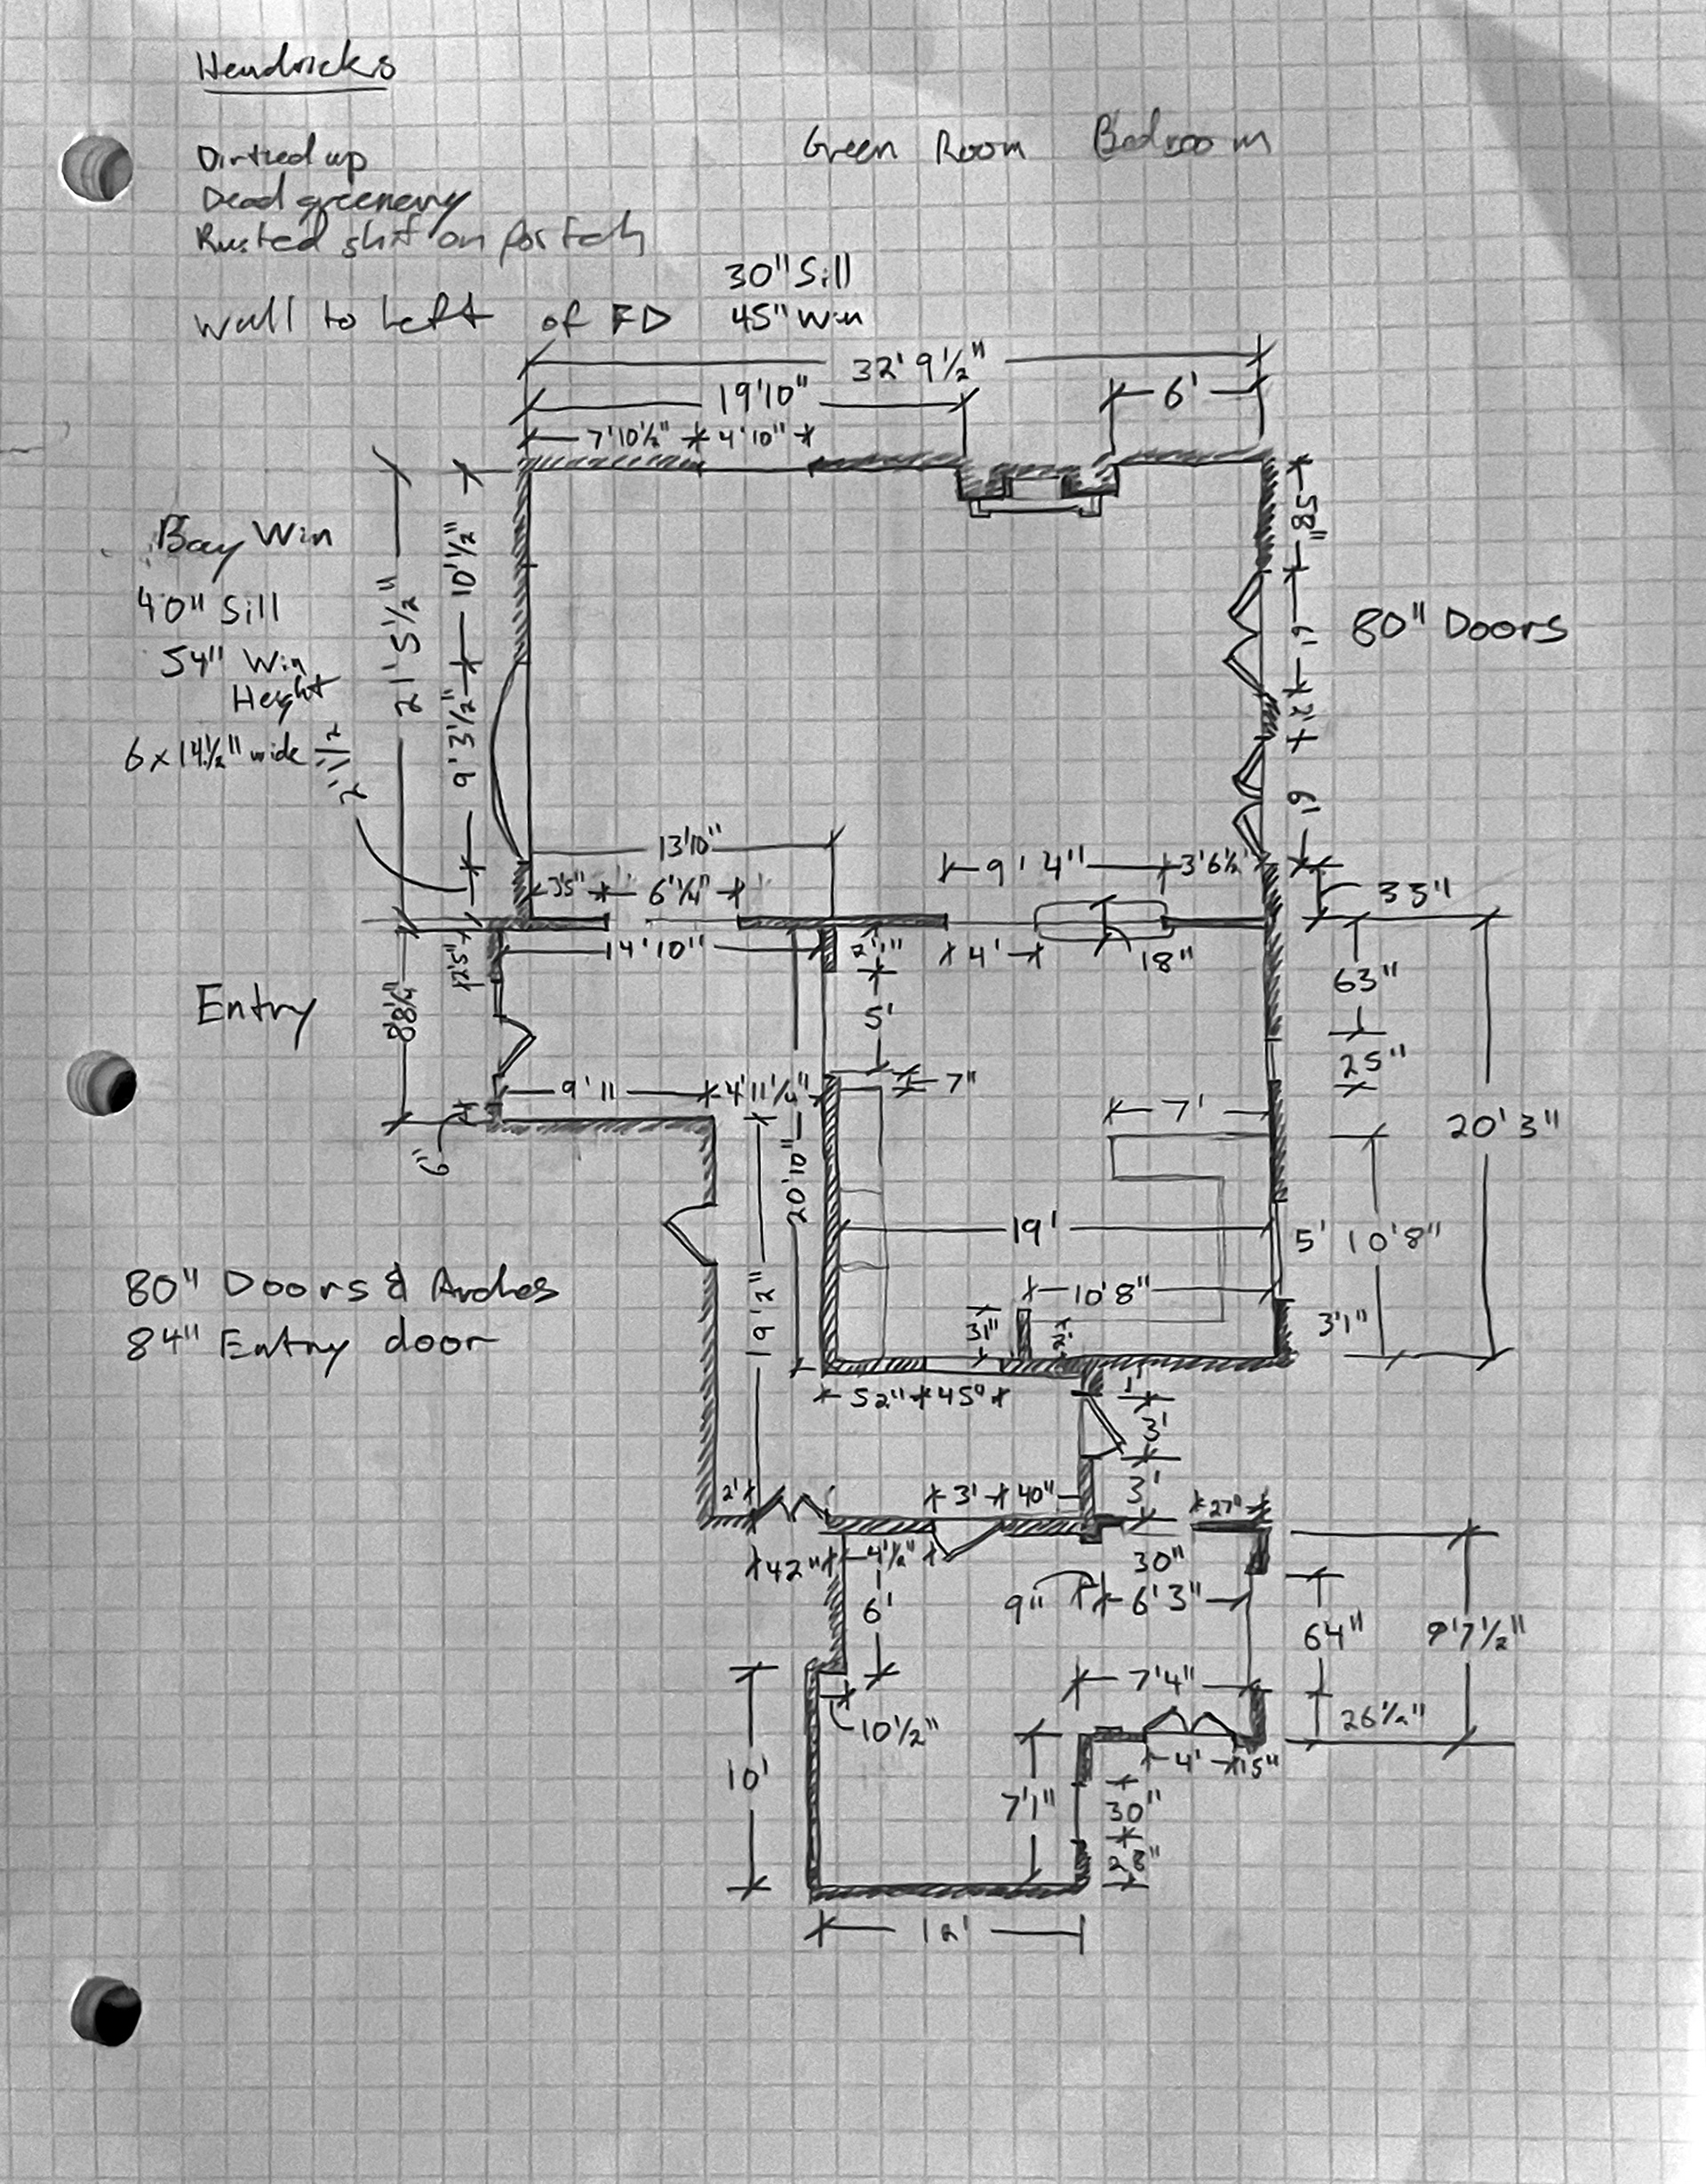 Hendricks
Green Room Bedroom
Dirtied up
Dead greenery
Rusted shit on
30" Sill
Wall to Left of FD 45" Win
32' 9½"
19'10"
6'
7'10½" 4'10"
58"
Bay Win
10'½"
40" Sill
21' 5½"
6'
80" Doors
54" Win
Height
9' 3½"
2'
6 x 14½" wide
6'
13'10"
9' 4" 3'6½"
3'5" 6'¼"
33"
14'10"
2'1"
4'
18"
2'5"
63"
Entry
88¼"
5'
25"
9'11 4'11¼"
7"
7'
20'3"
6"
20'10"
19'
5' 10'8"
80" Doors & Arches
19'2"
10'8"
84" Entry door
31"
2'
3'1"
52" 45"
1'
3'
3'
2'
3' 40"
27"
42" 4½"
30"
9"
6'3"
6'
64"
9'7½"
7'4"
10½"
26½"
10'
4' 15"
7'1"
30"
28"
12'